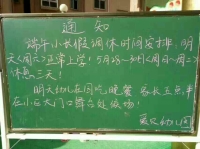 通知
端午小长假调休时间安排,明
天(周六)正常上学!5月28-30日(周日~周二)
休息三天!
明天幼儿在园吃晚餐 家长五点半
在小区大门口舞台处接场!
幼儿园